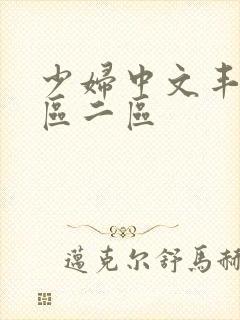 少婦中文
區二區
邁克尔舒馬赫